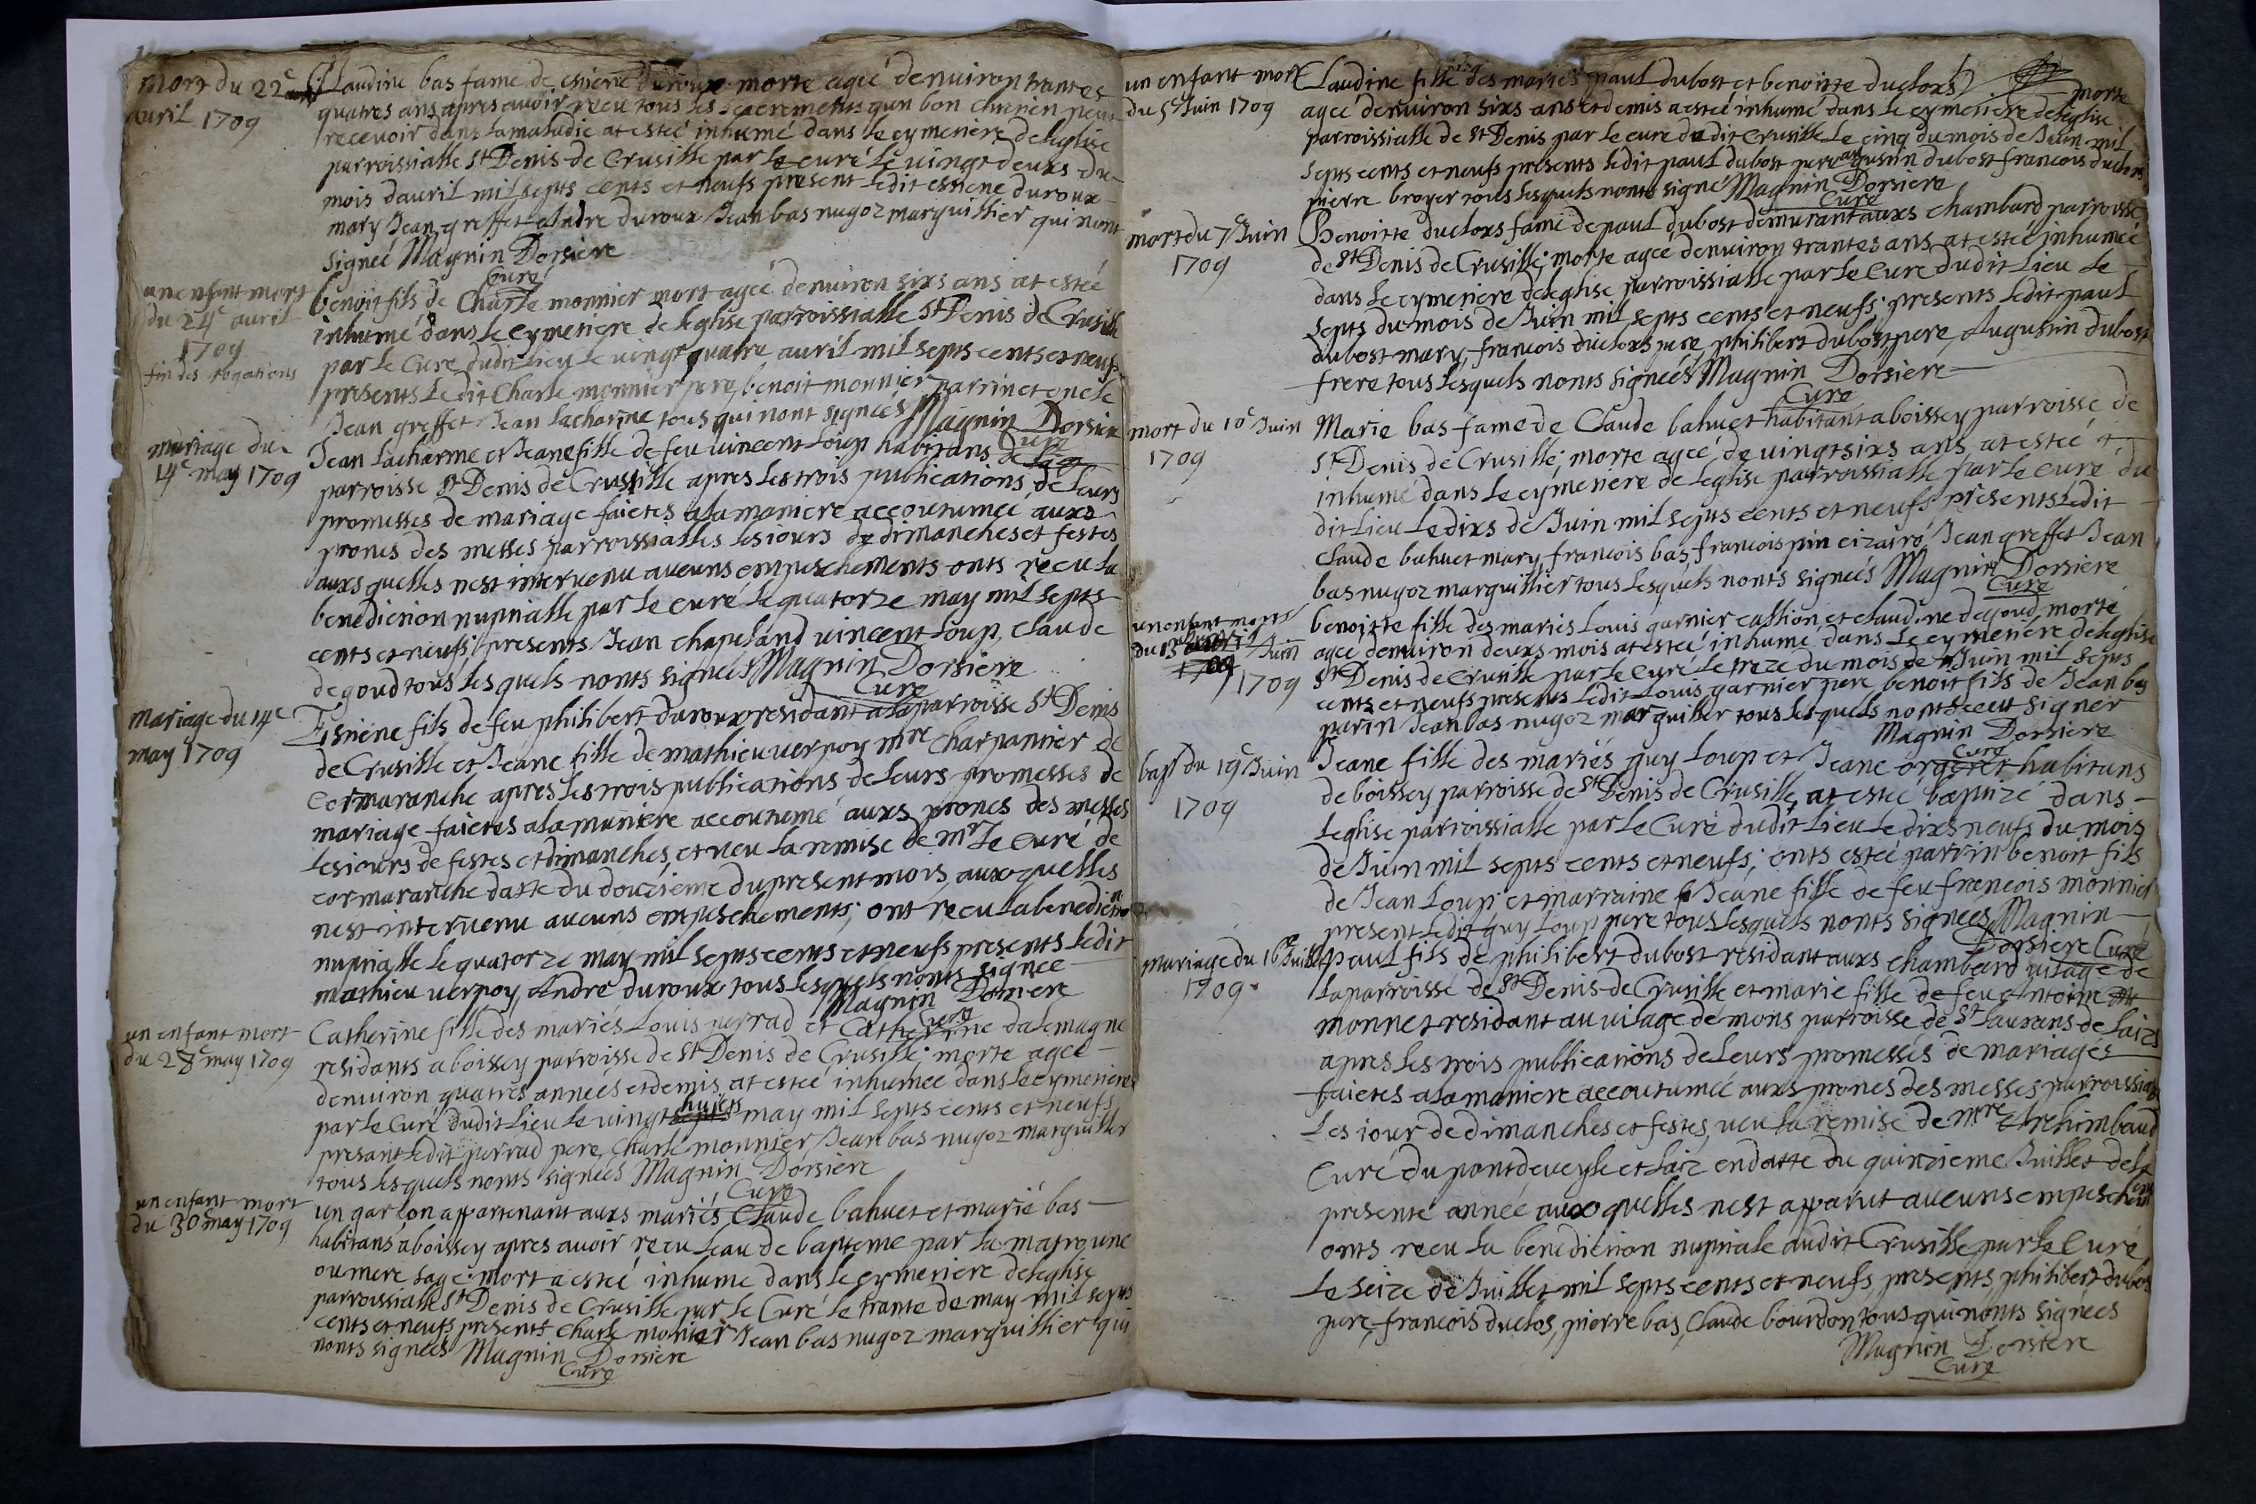 mort du 22e
auril 1709
Claudine bas fame de estiene duroux morte agée denuiron trantes
quatres ans apres auoir receu tous les sacrements qun bon chretien peut
receuoir dans la maladie at esteé inhumé dans le cymetiere deleglise
parroissialle St Denis de Crusille par le curé le uingt deuxs du
mois dauril mil septs cents et neufs present ledit estiene duroux
mary Jean greffet andre duroux Jean bas nugoz marguillier qui nont
signeé Magnin Dorsiere
Curé
un enfant mort
du 24e auril
1709
fin des rogations
benoit fils de Charle monnier mort ageé denuiron sixs ans at esteé
inhumé dans le Cymetiere de leglise parroissialle St Denis de Crusille
par le Cure dudit lieu le uingt quatre auril mil septs cents et neufs
presents Ledit Charle monnier pere, benoit monnier parrin et oncle
Jean greffet Jean lacharme tous qui nont signeés Magnin Dorsiere
Cure
mariage du
14e may 1709
Jean Lacharme et Jeane fille de feu uincent Loup habitans de la
parroisse St Denis de Crusille apres les trois publications de leurs
promesses de mariage faictes ala maniere accoutumeé auxs
prones des messes parroissialles les iours de dimanches et festes
auxs quelles nest interuenu aucuns empeschements onts receu la
benediction nuptialle par le curé le quatorze may mil septs
cents et neufs, presents Jean chapeland uincent Loup, Claude
degoud tous les quels nonts signeés Magnin Dorsiere
Cure
mariage du 14e
may 1709
Estiene fils de feu philibert duroux residant ala parroisse St Denis
de Crusille et Jeane fille de mathieu uerpoy mre Charpantier de
Cormaranche apres les trois publications de leurs promesses de
mariage faictes ala maniere accoutumé auxs prones des messes
les iours de festes et dimanches, et ueu la remise de mr Le curé de
cormaranche datte du douzieme du present mois auxquelles
nest interuenu aucuns empeschements; ont receu la benediction
nuptialle le quatorze may mil septs cents et neufs presents ledit
mathieu uerpoy, andre duroux tous lesquels nonts signeé
Magnin Dorsiere
Cure
un enfant mort
du 28e may 1709
Catherine fille des mariés Louis perrad et Catherine dalemagne
residants a boissey parroisse de St Denis de Crusille; morte ageé
denuiron quatres anneés et demis at esteé inhumeé dans le cymetiere
par le Curé dudit lieu le uingt huicts may mil septs cents et neufs
presant ledit perrad pere, Charle monnier, Jean bas nugoz marguillier
tous lesquels nonts signeés Magnin Dorsiere
Cure
un enfant mort
du 30e may 1709
un garson appartenant auxs mariés Claude bahuet et marié bas
habitans a boissey apres auoir receu Leau de bapteme par la matroune
ou mere sage; mort a esteé inhume dans le cymetiere deleglise
parroissialle St Denis de Crusille par le Curé le trante de may mil septs
cents et neufs presents Charle monnier Jean bas nugoz marguillier qui
nonts signeés Magnin Dorsiere
Cure
un enfant mort
du 5e Juin 1709
Claudine fille des mariés paul dubost et benoitte duclors morte
ageé denuiron sixs ans et demis a esteé inhumé dans le cymetiere deleglise
parroissialle de St Denis par le cure dudit Crusille le cinq du mois de Juin mil
septs cents et neufs presents ledit paul dubost pere, augustin dubost francois duclors
pierre broyer tous lesquels nonts signé Magnin Dorsiere
Cure
mort du 7e Juin
1709
Benoitte duclors fame de paul dubost demurant auxs chambard parroisse
de St Denis de Crusille; morte ageé denuiron trantes ans at esteé inhumeé
dans le cymetiere deleglise parroissialle par le Cure dudit lieu le
septs du mois de Juin mil septs cents et neufs; presents ledit paul
dubost mary, francois duclors pere, philibert dubost pere, augustin dubost
frere tous lesquels nonts signeés Magnin Dorsiere
Cure
mort du 10e Juin
1709
Marie bas fame de Claude bahuet habitant a boissey parroisse de
St Denis de Crusille; morte ageé de uingt sixs ans, at esteé
inhumé dans le cymetiere de leglise parroissialle par le curé du
dit lieu le dixs de Juin mil septs cents et neufs presents ledit
Claude bahuet mary, francois bas, francois Jean greffet Jean
bas nugoz marguillier tous lesquels nonts signeés Magnin Dorsiere
Cure
un enfant mort
du 13e Juin
1709
1709
benoitte fille des mariés Louis garnier et claudine degoud morte
ageé denuiron deuxs mois at esteé inhumé dans le cymetiere deleglise
St Denis de Crusille par le Curé le treze du mois de Juin mil septs
cents et neufs presents ledit Louis garnier pere benoit fils de Jean bas
parin Jean bas nugoz marguillier tous lesquels nont sceut signer
Magnin Dorsiere
Cure
bapt du 19e Juin
1709
Jeane fille des mariés guy Loup et Jeane orgeret habitans
de boissey parroisse de St Denis de Crusille, at esteé baptizé dans
leglise parroissialle par le Curé dudit lieu le dixs neufs du mois
de Juin mil septs cents et neufs; onts esteé parrin benoit fils
de Jean Loup et marraine Jeane fille de feu francois monnier
present ledit guy Loup pere tous lesquels nonts signees Magnin
Dorsiere Curé
mariage du 16e Juillet
1709
paul fils de philibert dubost residant auxs chambard uilage de
la parroisse de St Denis de Crusille et marie fille de feu antoine
monnet residant au uilage de mons parroisse de St Laurans de laizs
apres les trois publications de leurs promesses de mariages
faictes ala maniere accoutumeé auxs prones des messes parroissialles
les iour de dimanches et festes, ueu la remise de mre archimbaud
Curé du pontdeueyle et laiz en datte du quinzieme Juillet de la
presente année auxquelles nest apparut aucuns empeschements
onts receu la benediction nuptiale audit Crusille par le Curé
Le seize de Juillet mil septs cents et neufs, presents philibert dubost
pere, francois duclos, pierre bas, Claude bourdon tous qui nonts signées
Magnin Dorsiere
Cure